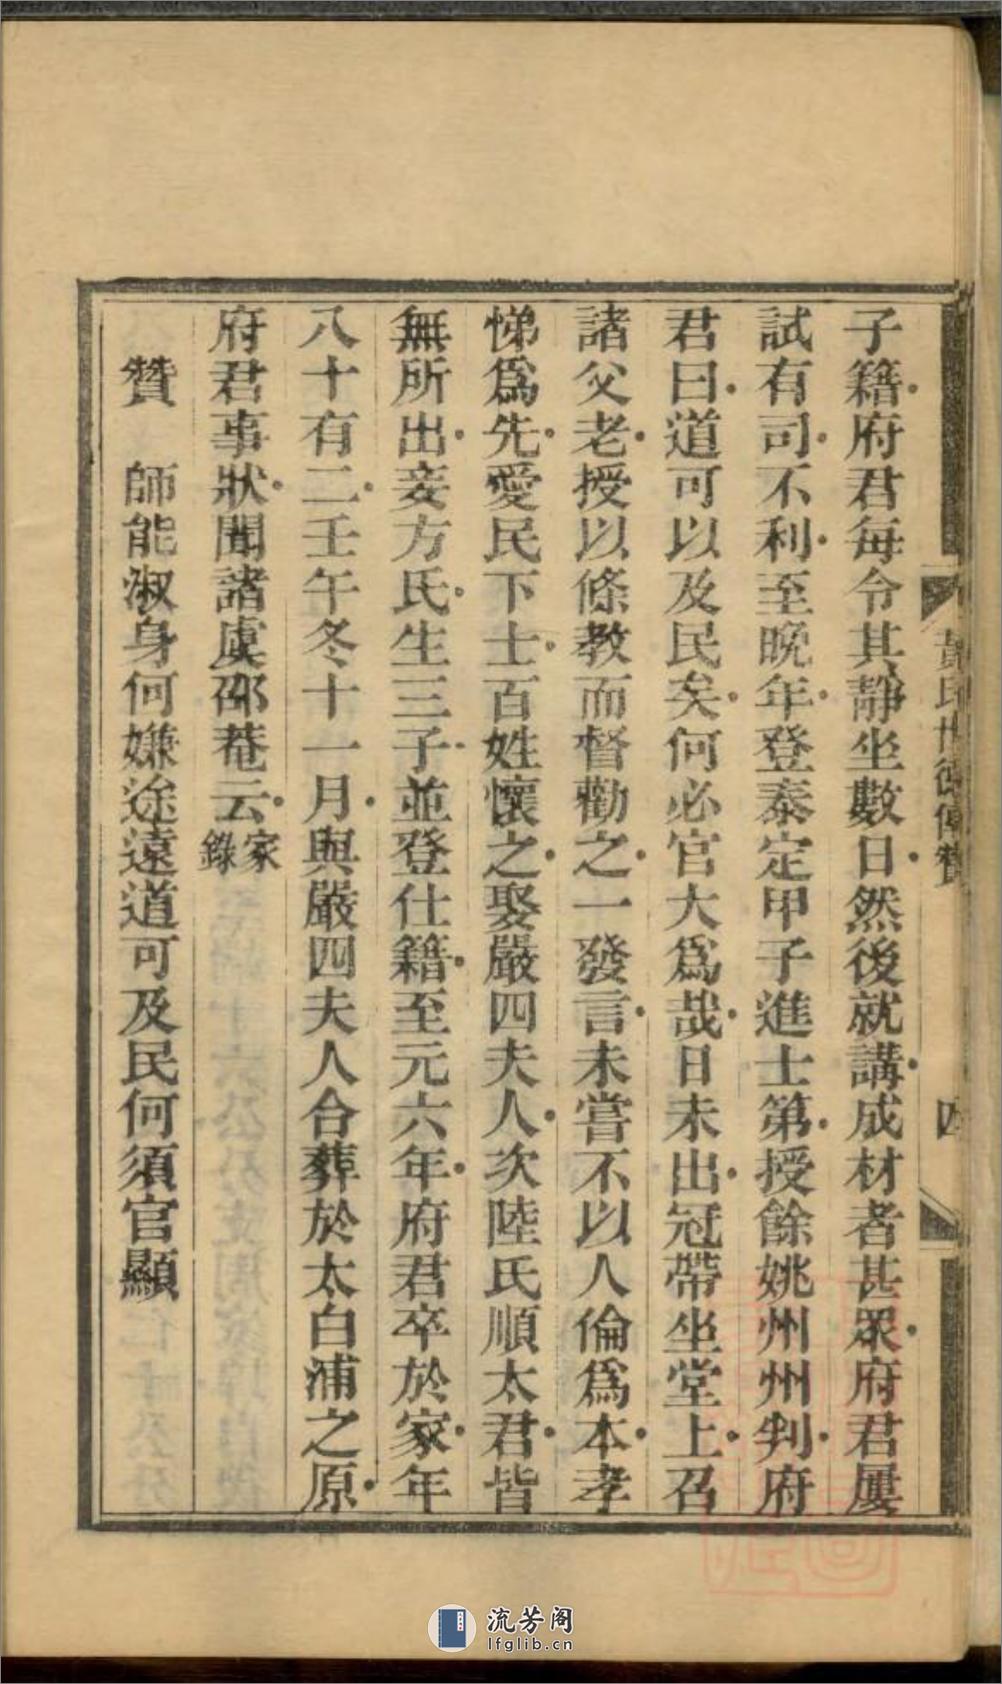 子籍府君每令其靜坐數日然後就講成材者甚眾府君屢
試有司不利至晚年登泰定甲子進士第授餘姚州州判府
君曰道可以及民矣何必官大爲哉日未出冠帶坐堂上召
諸父老授以條教而督勸之一發言未嘗不以人倫爲本孝
悌爲先愛民下士百姓懷之娶嚴四夫人次陸氏順太君皆
無所出妾方氏生三子並登仕籍至元六年府君卒於家年
八十有二壬午冬十一月與嚴四夫人合葬於太白浦之原
府君事狀聞諸虞邵菴云家錄
贊 師能淑身何嫌途遠道可及民何須官顯
黃氏世德傳贊
四
流芳阁
lfglib.cn